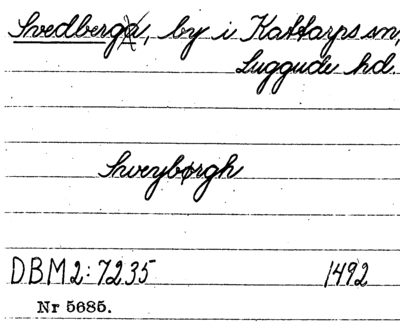 Svedberga, by i Kattarps sn,
Luggude hd.
Sweybørgh
DBM 2: 7235 1492
Nr 5685.